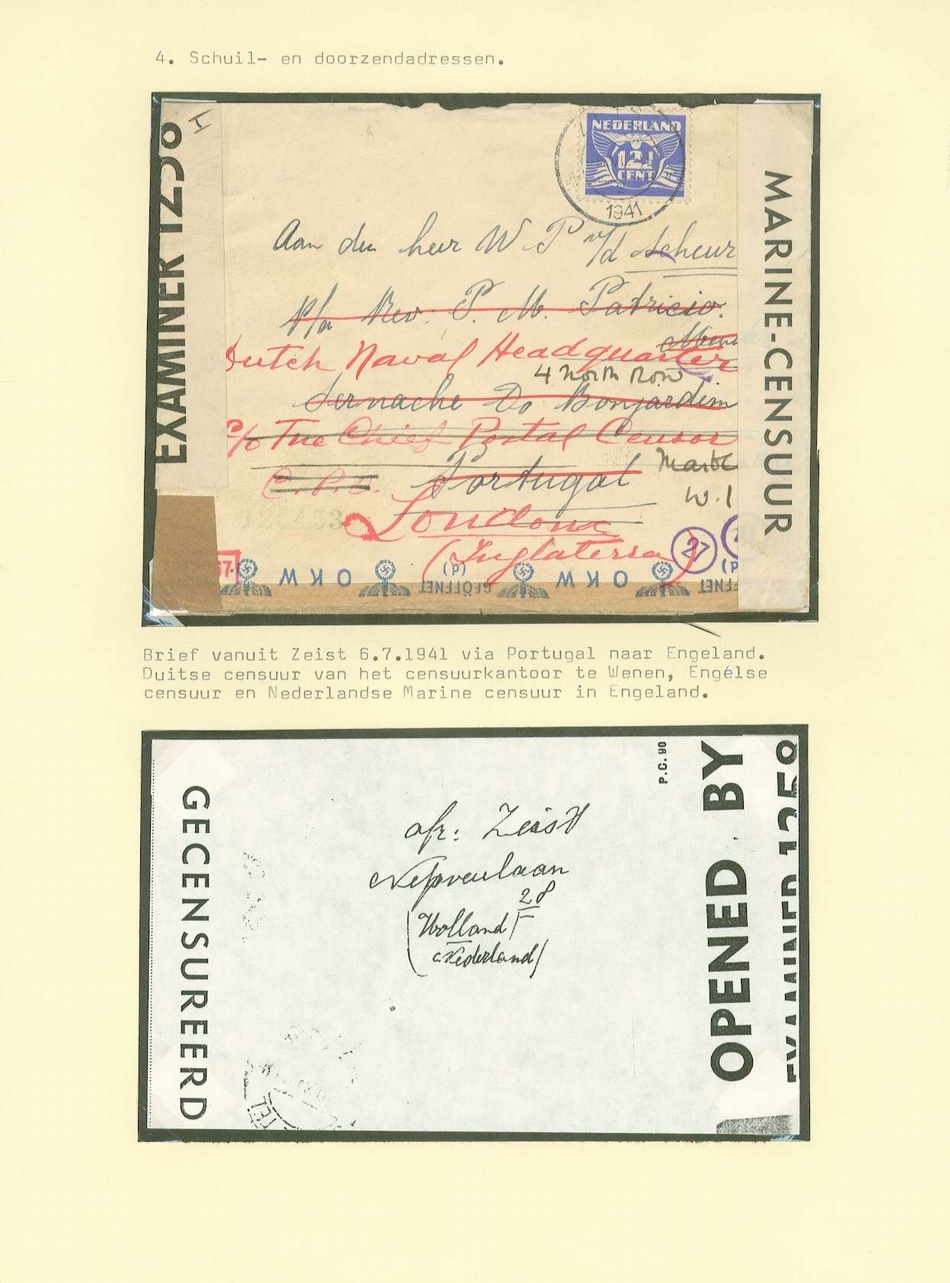 4. Schuil- en doorzendadressen.
EXAMINER 1258
NEDERLAND
12½
CENT
1941
MARINE-CENSUUR
Aan den heer W P v/d Scheur
p/a Rev. P. M. Patricio.
Dutch Naval Headquarter
4 North Row
Sernache Do Bonjardim
c/o The Chief Postal Censor
C.P.C. Portugal
W.1
London
(Inglaterra)
27
67.
OKW
(d)
GEÖFFNET
OKW
(d)
Brief vanuit Zeist 6.7.1941 via Portugal naar Engeland.
Duitse censuur van het censuurkantoor te Wenen, Engélse
censuur en Nederlandse Marine censuur in Engeland.
GECENSUREERD
P.C. 90
OPENED BY
EXAMINER 1258
afz: Zeist
Nepveulaan
28
(Holland
Nederland)